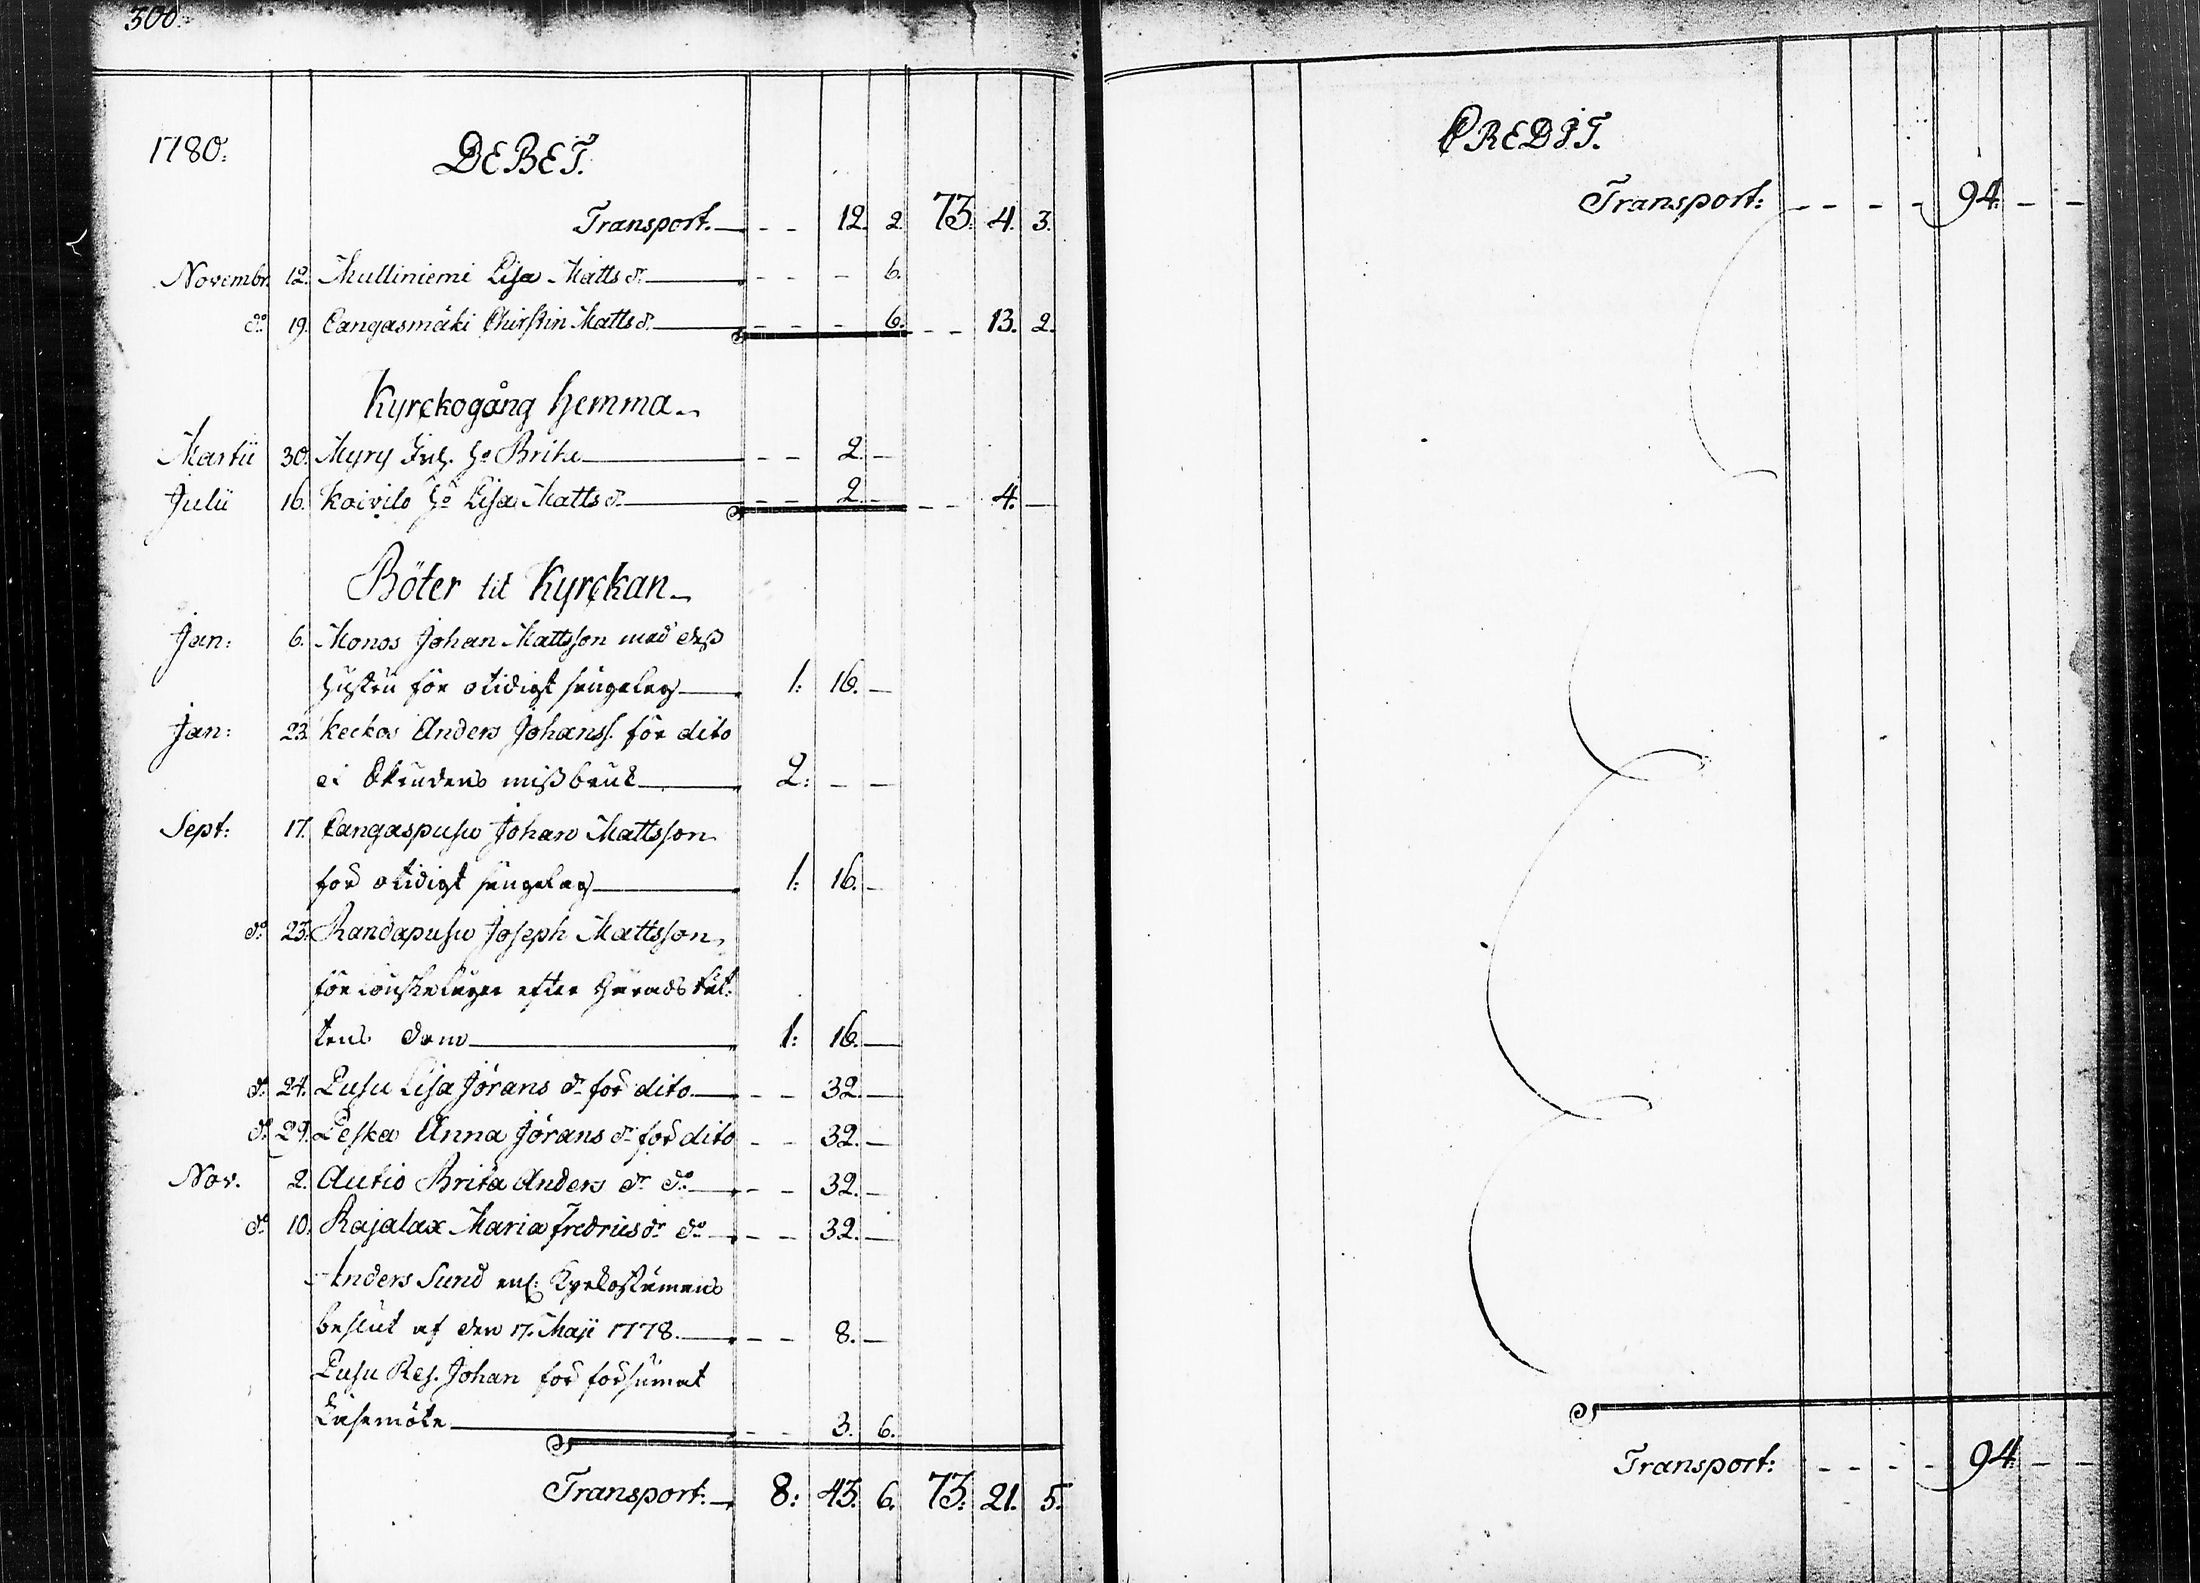 300.
1780.
DEBET.
Transport. — - - 12. 2. 73. 4. 3.
Novembr. 12. Mulliniemi Lisa Matts dr — - - - 6.
do 19. Cangasmäki Chirstin Matts d. — - - - 6. - - 13. 2.
Kyrckogång hemma.
Martii 30. Myry Inh. ho Brita — - - 2. —
Julii 16. Koivilo ho Lisa Matts dr — - - 2. — - - 4. —
Böter til Kyrckan
Jan: 6. Monos Johan Mattsson med dess
hustru för otidigt sängelag — 1: 16. —
Jan: 23. Keckos Anders Johanss. för dito
2: - —
Sept: 17. Cangaspusu Johan Mattsson
för otidigt sängelag — 1: 16. —
do 23. Randapusu Joseph Mattsson
för lönskaläger efter Häradsrät-
tens dom — 1: 16. —
d. 24. Pusu Lisa Jörans dr för dito — - - 32. —
d. 29. Peska Anna Jörans dr för dito - - 32. —
Nov. 2. Autio Brita Anders dr do — - - 32. —
d. 10. Rajalax Maria Fredrics dr do — - - 32. —
Anders Sund enl. Kyrkostämans
beslut af den 17. Maji 1778. — - - 8. —
Pusu Res. Johan för försümat
Läsemöte — - - 3. 6.
Transport. — 8: 43. 6. 73. 21. 5.
CREDIT.
Transport: - - - - 94. - -
Transport: - - - - 94. - -